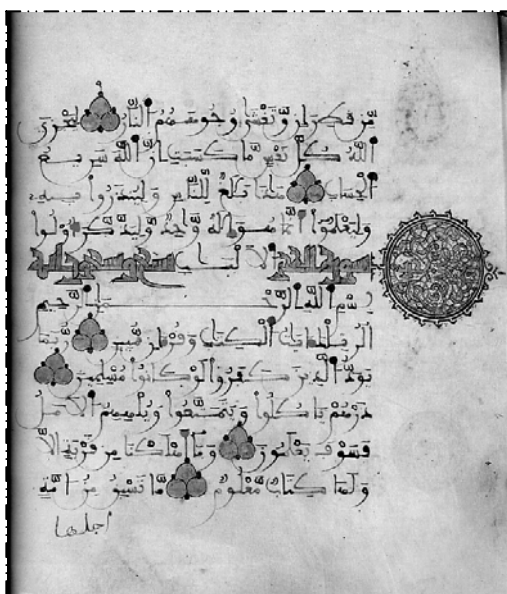 مِّن قَطِرَانٍ وَّتَغْشَىٰ وُجُوهَهُمُ النَّارُ لِيَجْزِيَ
اللَّهُ كُلَّ نَفْسٍ مَّا كَسَبَتْ إِنَّ اللَّهَ سَرِيعُ
الْحِسَابِ هَٰذَا بَلَٰغٌ لِّلنَّاسِ وَلِيُنذَرُوا بِهِ
وَلِيَعْلَمُوا أَنَّمَا هُوَ إِلَٰهٌ وَّٰحِدٌ وَلِيَذَّكَّرَ أُوْلُوا
سورة الحجر الَالْبَٰبِ تسع وتسعون اية
بِسْمِ اللَّهِ الرَّحْمَٰنِ الرَّحِيمِ
الٓر تِلْكَ ءَايَٰتُ الْكِتَٰبِ وَقُرْءَانٍ مُّبِينٍ رُّبَمَا
يَوَدُّ الَّذِينَ كَفَرُوا لَوْ كَانُوا مُسْلِمِينَ
ذَرْهُمْ يَاكُلُوا وَيَتَمَتَّعُوا وَيُلْهِهِمُ الَامَلُ
فَسَوْفَ يَعْلَمُونَ وَمَا أَهْلَكْنَا مِن قَرْيَةٍ اِلَّا
وَلَهَا كِتَابٌ مَّعْلُومٌ مَّا تَسْبِقُ مِنُ امَّةٍ
اجلها